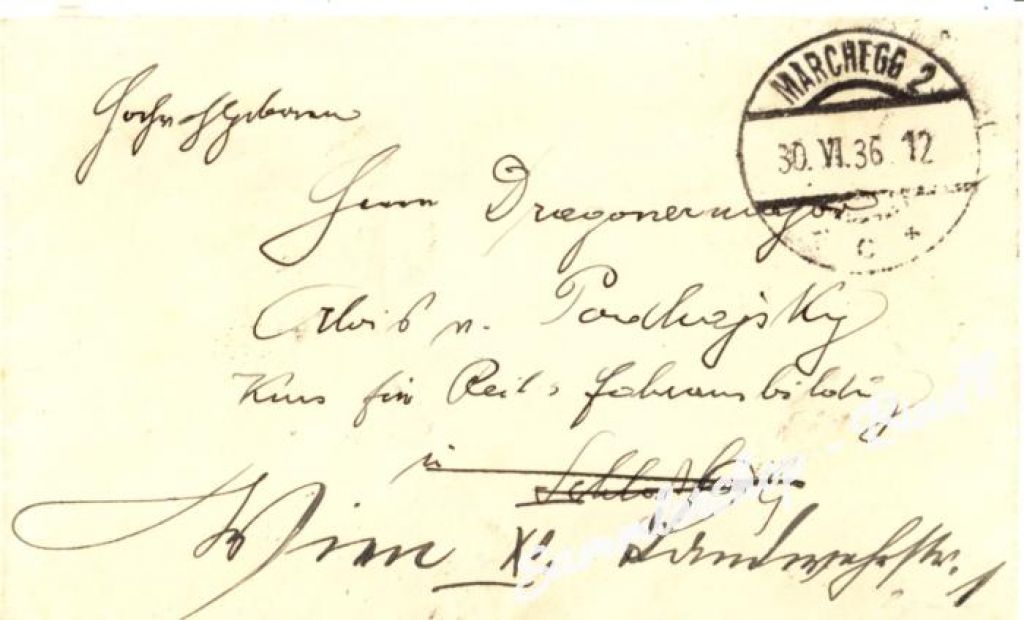 MARCHEGG 2
30. VI. 36 12
C +
Hochwohlgeboren
Herrn Dragonermajor
Alois v. Podhajsky
Kurs für Reit- Fahrausbildg
in Schloßhof
Wien XI. Landwehrstr. 1